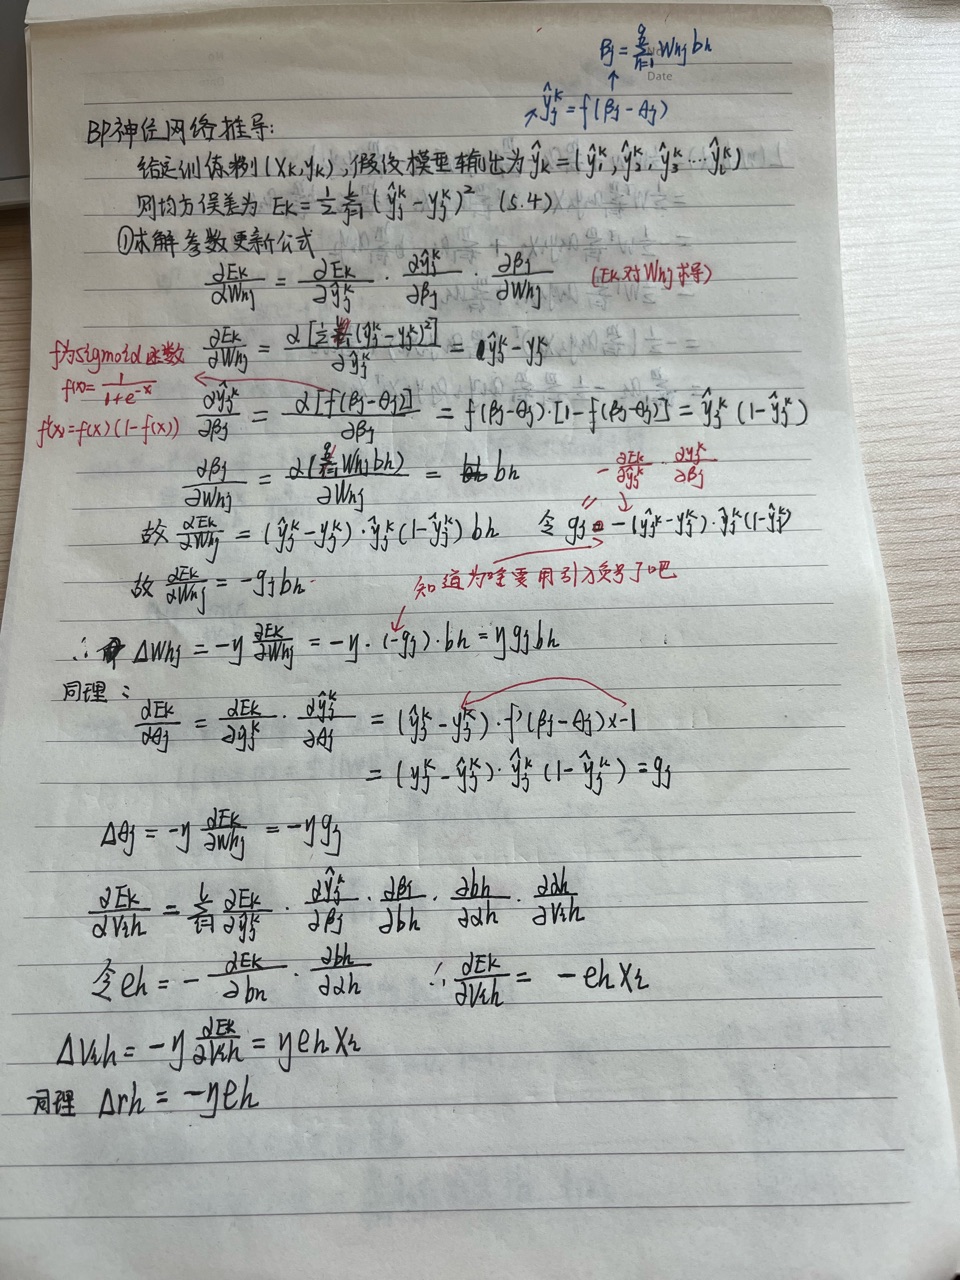 βj = Σ(h=1→q) Whj bh
Date
↑
↗ ŷjᵏ = f(βj − θj)
BP神经网络推导:
给定训练样例(Xk,yk),假设模型输出为 ŷk = (ŷ1ᵏ, ŷ2ᵏ, ŷ3ᵏ … ŷlᵏ)
则均方误差为 Ek = ½ Σ(j=1→l) (ŷjᵏ − yjᵏ)² (5.4)
①求解参数更新公式
∂Ek/∂Whj = ∂Ek/∂ŷjᵏ · ∂ŷjᵏ/∂βj · ∂βj/∂Whj (Ek对Whj求导)
f为sigmoid函数
∂Ek/∂Whj = ∂[½ (ŷjᵏ − yjᵏ)²]/∂ŷjᵏ = ŷjᵏ − yjᵏ
f(x) = 1/(1+e^-x)
f'(x) = f(x)(1−f(x))
∂ŷjᵏ/∂βj = ∂[f(βj−θj)]/∂βj = f(βj−θj)·[1−f(βj−θj)] = ŷjᵏ(1−ŷjᵏ)
∂βj/∂Whj = ∂(Σ Whj bh)/∂Whj = bh
− ∂Ek/∂ŷjᵏ · ∂ŷjᵏ/∂βj
故 ∂Ek/∂Whj = (ŷjᵏ − yjᵏ)·ŷjᵏ(1−ŷjᵏ) bh 令 gj = −(ŷjᵏ−yjᵏ)·ŷjᵏ(1−ŷjᵏ)
故 ∂Ek/∂Whj = −gj bh
知道为啥要用引入负号了吧
∴ ΔWhj = −η ∂Ek/∂Whj = −η·(−gj)·bh = η gj bh
同理:
∂Ek/∂θj = ∂Ek/∂ŷjᵏ · ∂ŷjᵏ/∂θj = (ŷjᵏ − yjᵏ)·f'(βj−θj)×−1
= (yjᵏ − ŷjᵏ)·ŷjᵏ(1−ŷjᵏ) = gj
Δθj = −η ∂Ek/∂Whj = −η gj
∂Ek/∂Vih = Σ(j=1→l) ∂Ek/∂ŷjᵏ · ∂ŷjᵏ/∂βj · ∂βj/∂bh · ∂bh/∂αh · ∂αh/∂Vih
令 eh = − ∂Ek/∂bh · ∂bh/∂αh ∴ ∂Ek/∂Vih = −eh Xi
ΔVih = −η ∂Ek/∂Vih = η eh Xi
同理 Δrh = −η eh